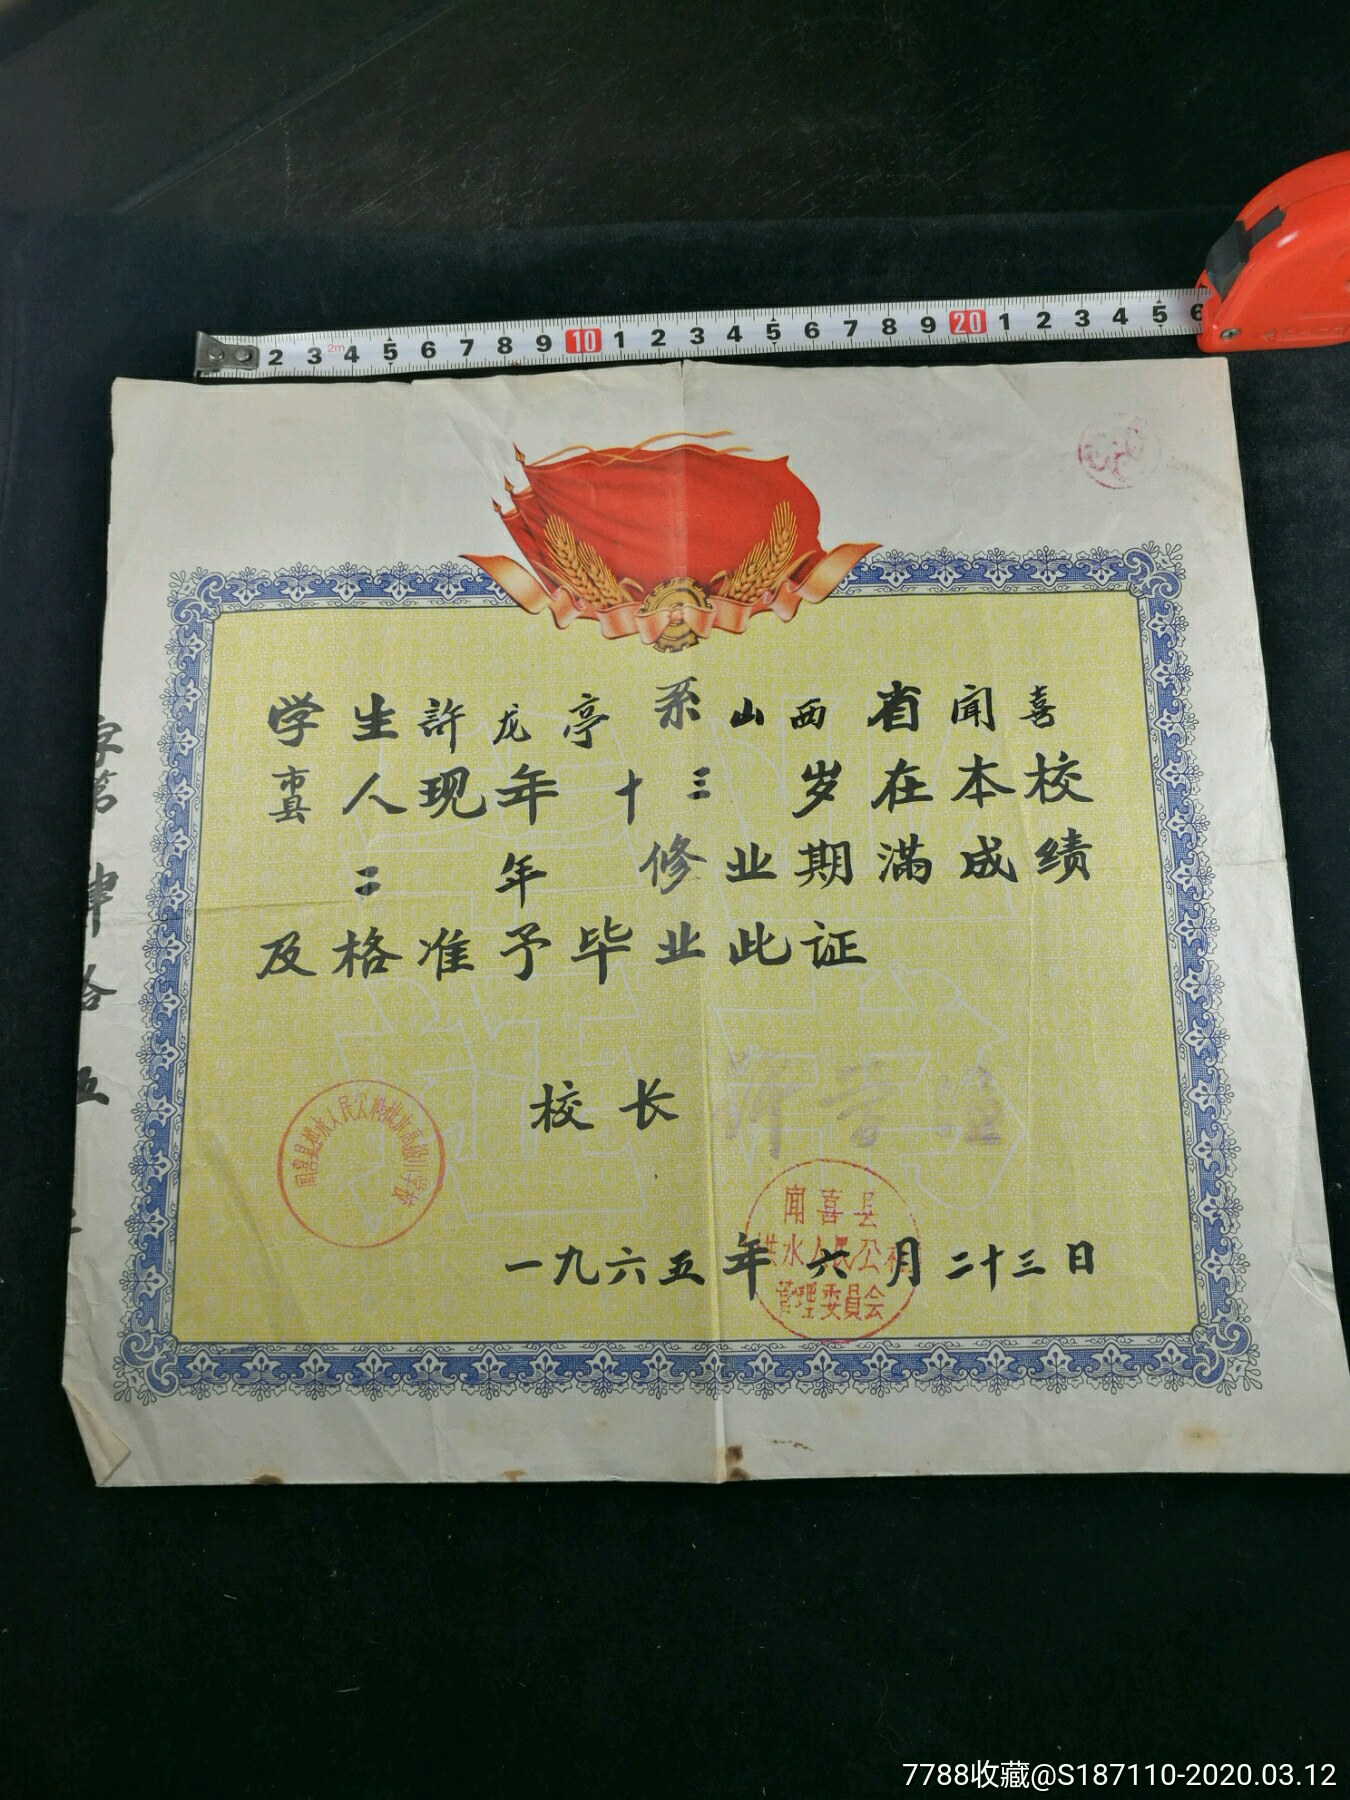 2 3 2m 4 5 6 7 8 9 10 1 2 3 4 5 6 7 8 9 20 1 2 3 4 5 6
学生許龙亭系山西省闻喜
市县人现年十三岁在本校
二年修业期满成绩
及格准予毕业此证
校长
闻喜县
洪水人民公社
管理委員会
一九六五年六月二十三日
字第肆拾五
7788收藏@S187110-2020.03.12